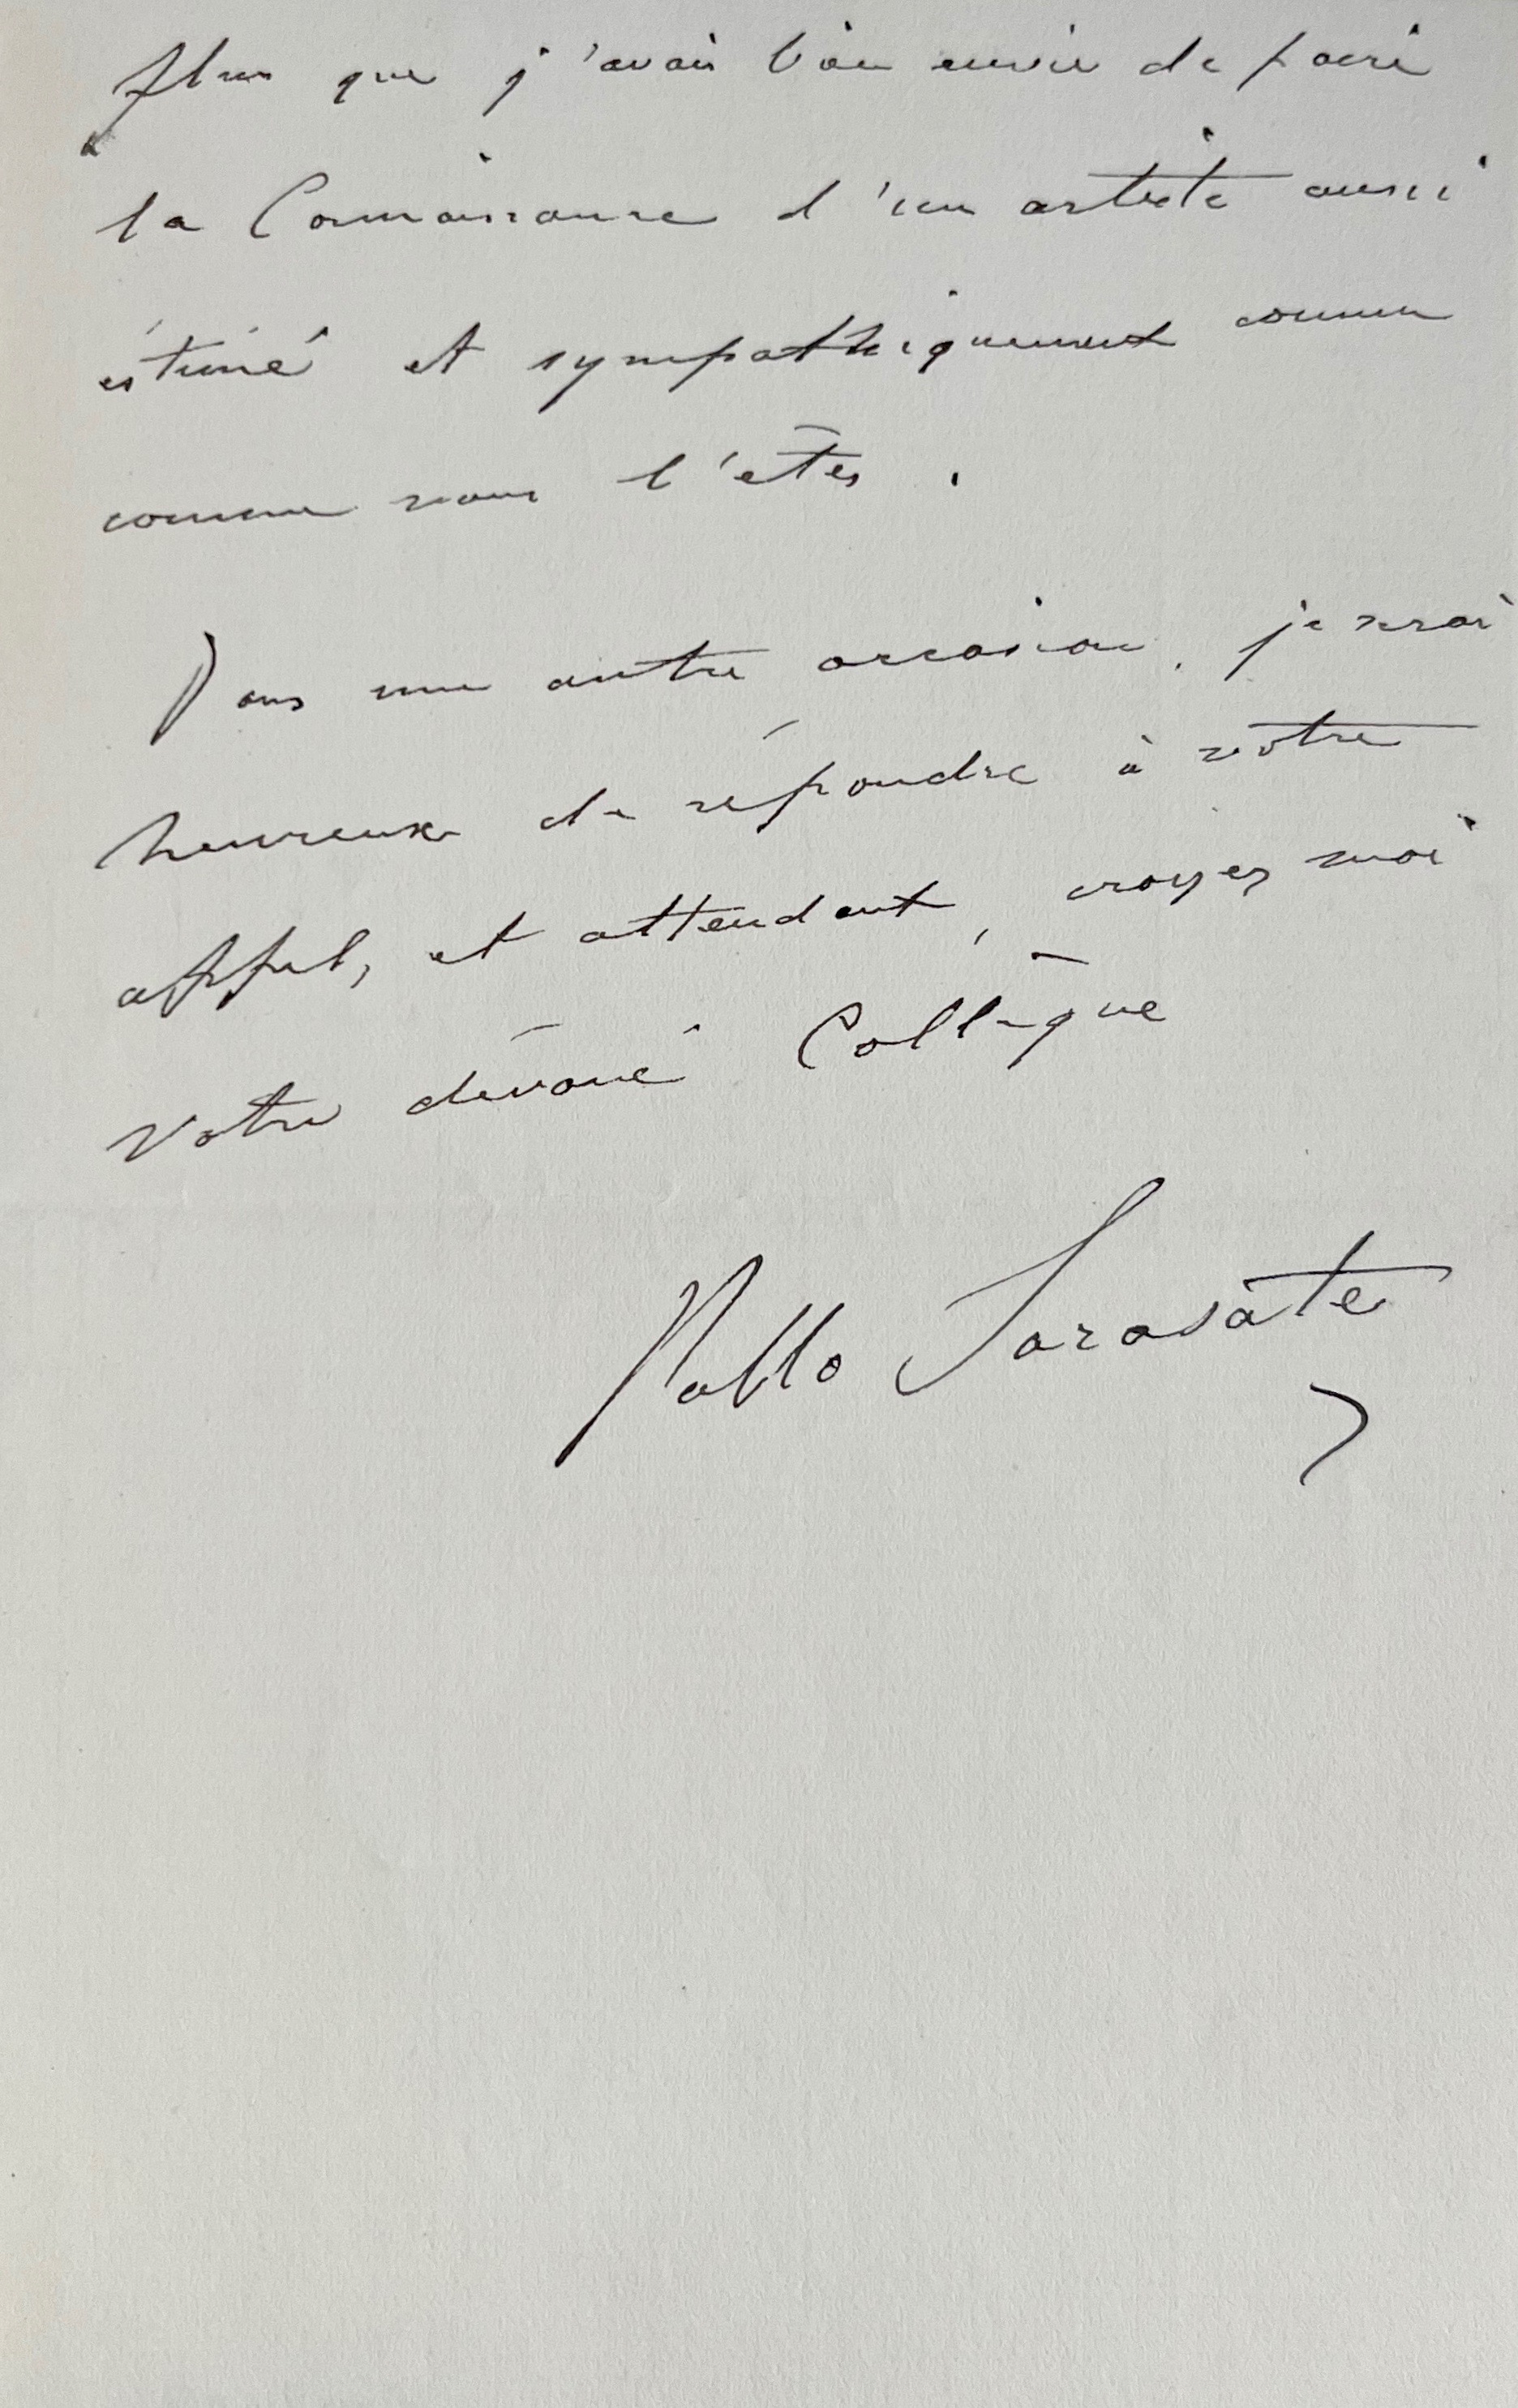 plus que j'avais bien envie de faire
la Connaissance d'un artiste aussi
éstimé et sympathiquement connu
comme vous l'êtes.
Dans une autre occasion, je serai
heureux de répondre à votre
appel, et attendant, croyez moi
Votre dévoué Collègue
Pablo Sarasate